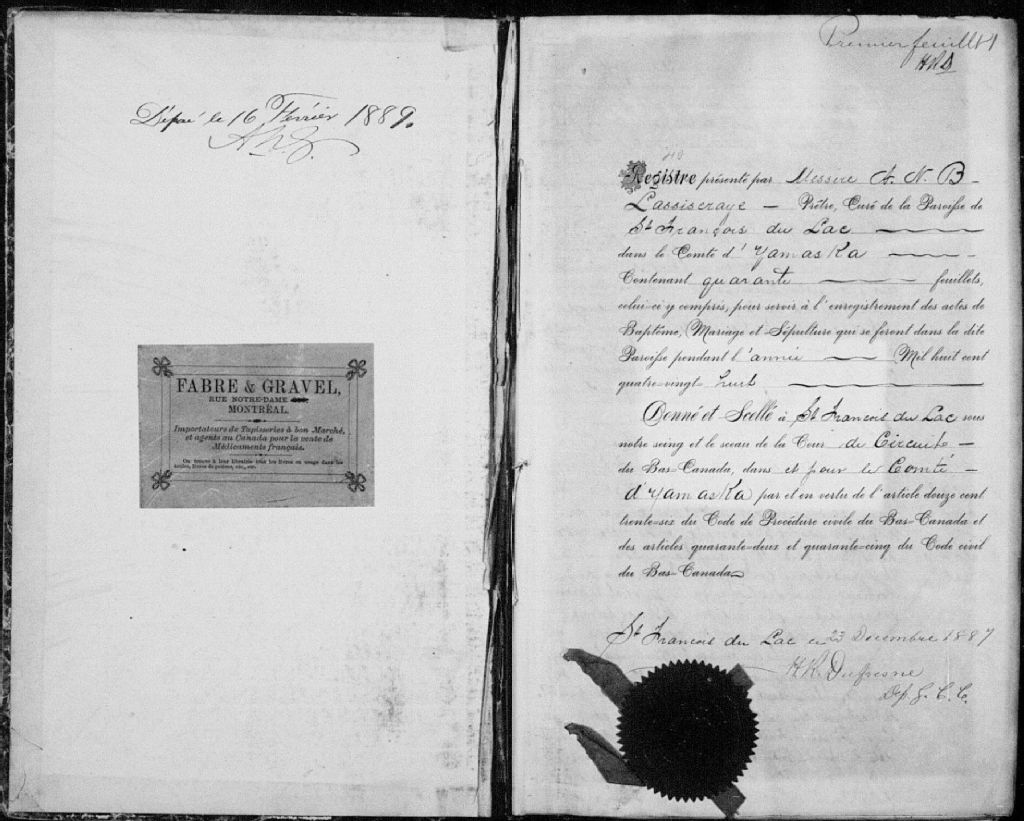 Déposé le 16 Février 1889.
FABRE & GRAVEL,
RUE NOTRE-DAME
MONTRÉAL.
Importateurs de Tapisseries à bon Marché,
et agents au Canada pour la vente de
Médicaments français.
On trouve à leur librairie tous les livres en usage dans les
écoles, livres de prières, etc., etc.
Premier feuillet
H.R.D
Registre présenté par Messire A. N. B
Lassiseraye — Prêtre, Curé de la Paroisse de
St François du Lac
dans le Comté d' Yamaska
Contenant quarante feuillets,
celui-ci y compris, pour servir à l'enregistrement des actes de
Baptême, Mariage et Sépulture qui se feront dans la dite
Paroisse pendant l'année Mil huit cent
quatre-vingt huit
Donné et Scellé à St Francois du Lac sous
notre seing et le sceau de la Cour de Circuit
du Bas-Canada, dans et pour le Comté
d'Yamaska par et en vertu de l'article douze cent
trente-six du Code de Procédure civile du Bas-Canada et
des articles quarante-deux et quarante-cinq du Code civil
du Bas-Canada
St Francois du Lac ce 23 Decembre 1887
H.R. Dufresne
Dp. G. C. C.